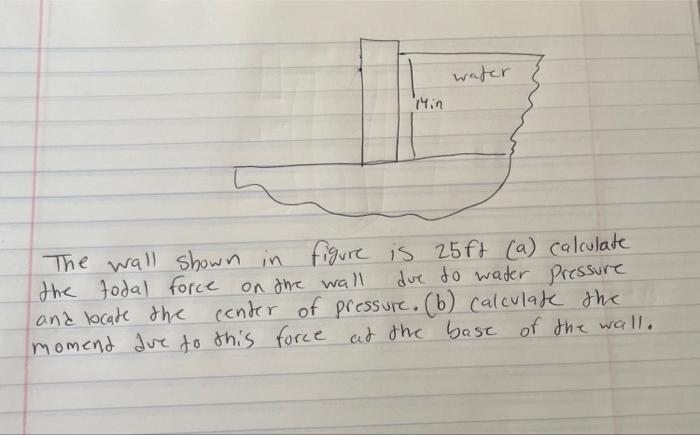 water
14in
The wall shown in figure is 25ft (a) calculate
the total force on the wall due to water pressure
and locate the center of pressure. (b) calculate the
moment due to this force at the base of the wall.